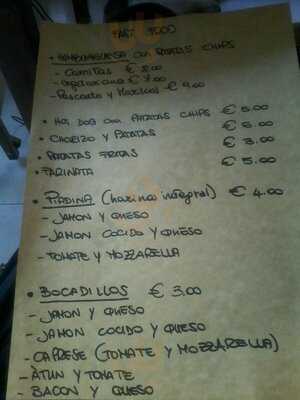 FAST FOOD
• HAMBURGUESA con PATATAS CHIPS
- Carnibas € 8.00
- Vegetariana € 7.00
- Pescado y Marisco € 9.00
• HOT DOG con PATATAS CHIPS € 5.00
• CHORIZO y PATATAS € 6.00
• PATATAS FRITAS € 3.00
• FARINATA € 5.00
• PIADINA (harina integral) € 4.00
- JAMON y QUESO
- JAMON COCIDO y QUESO
- TOMATE y MOZZARELLA
• BOCADILLOS € 3.00
- JAMON y QUESO
- JAMON COCIDO y QUESO
- CAPRESE (TOMATE y MOZZARELLA)
- ATUN y TOMATE
- BACON y QUESO